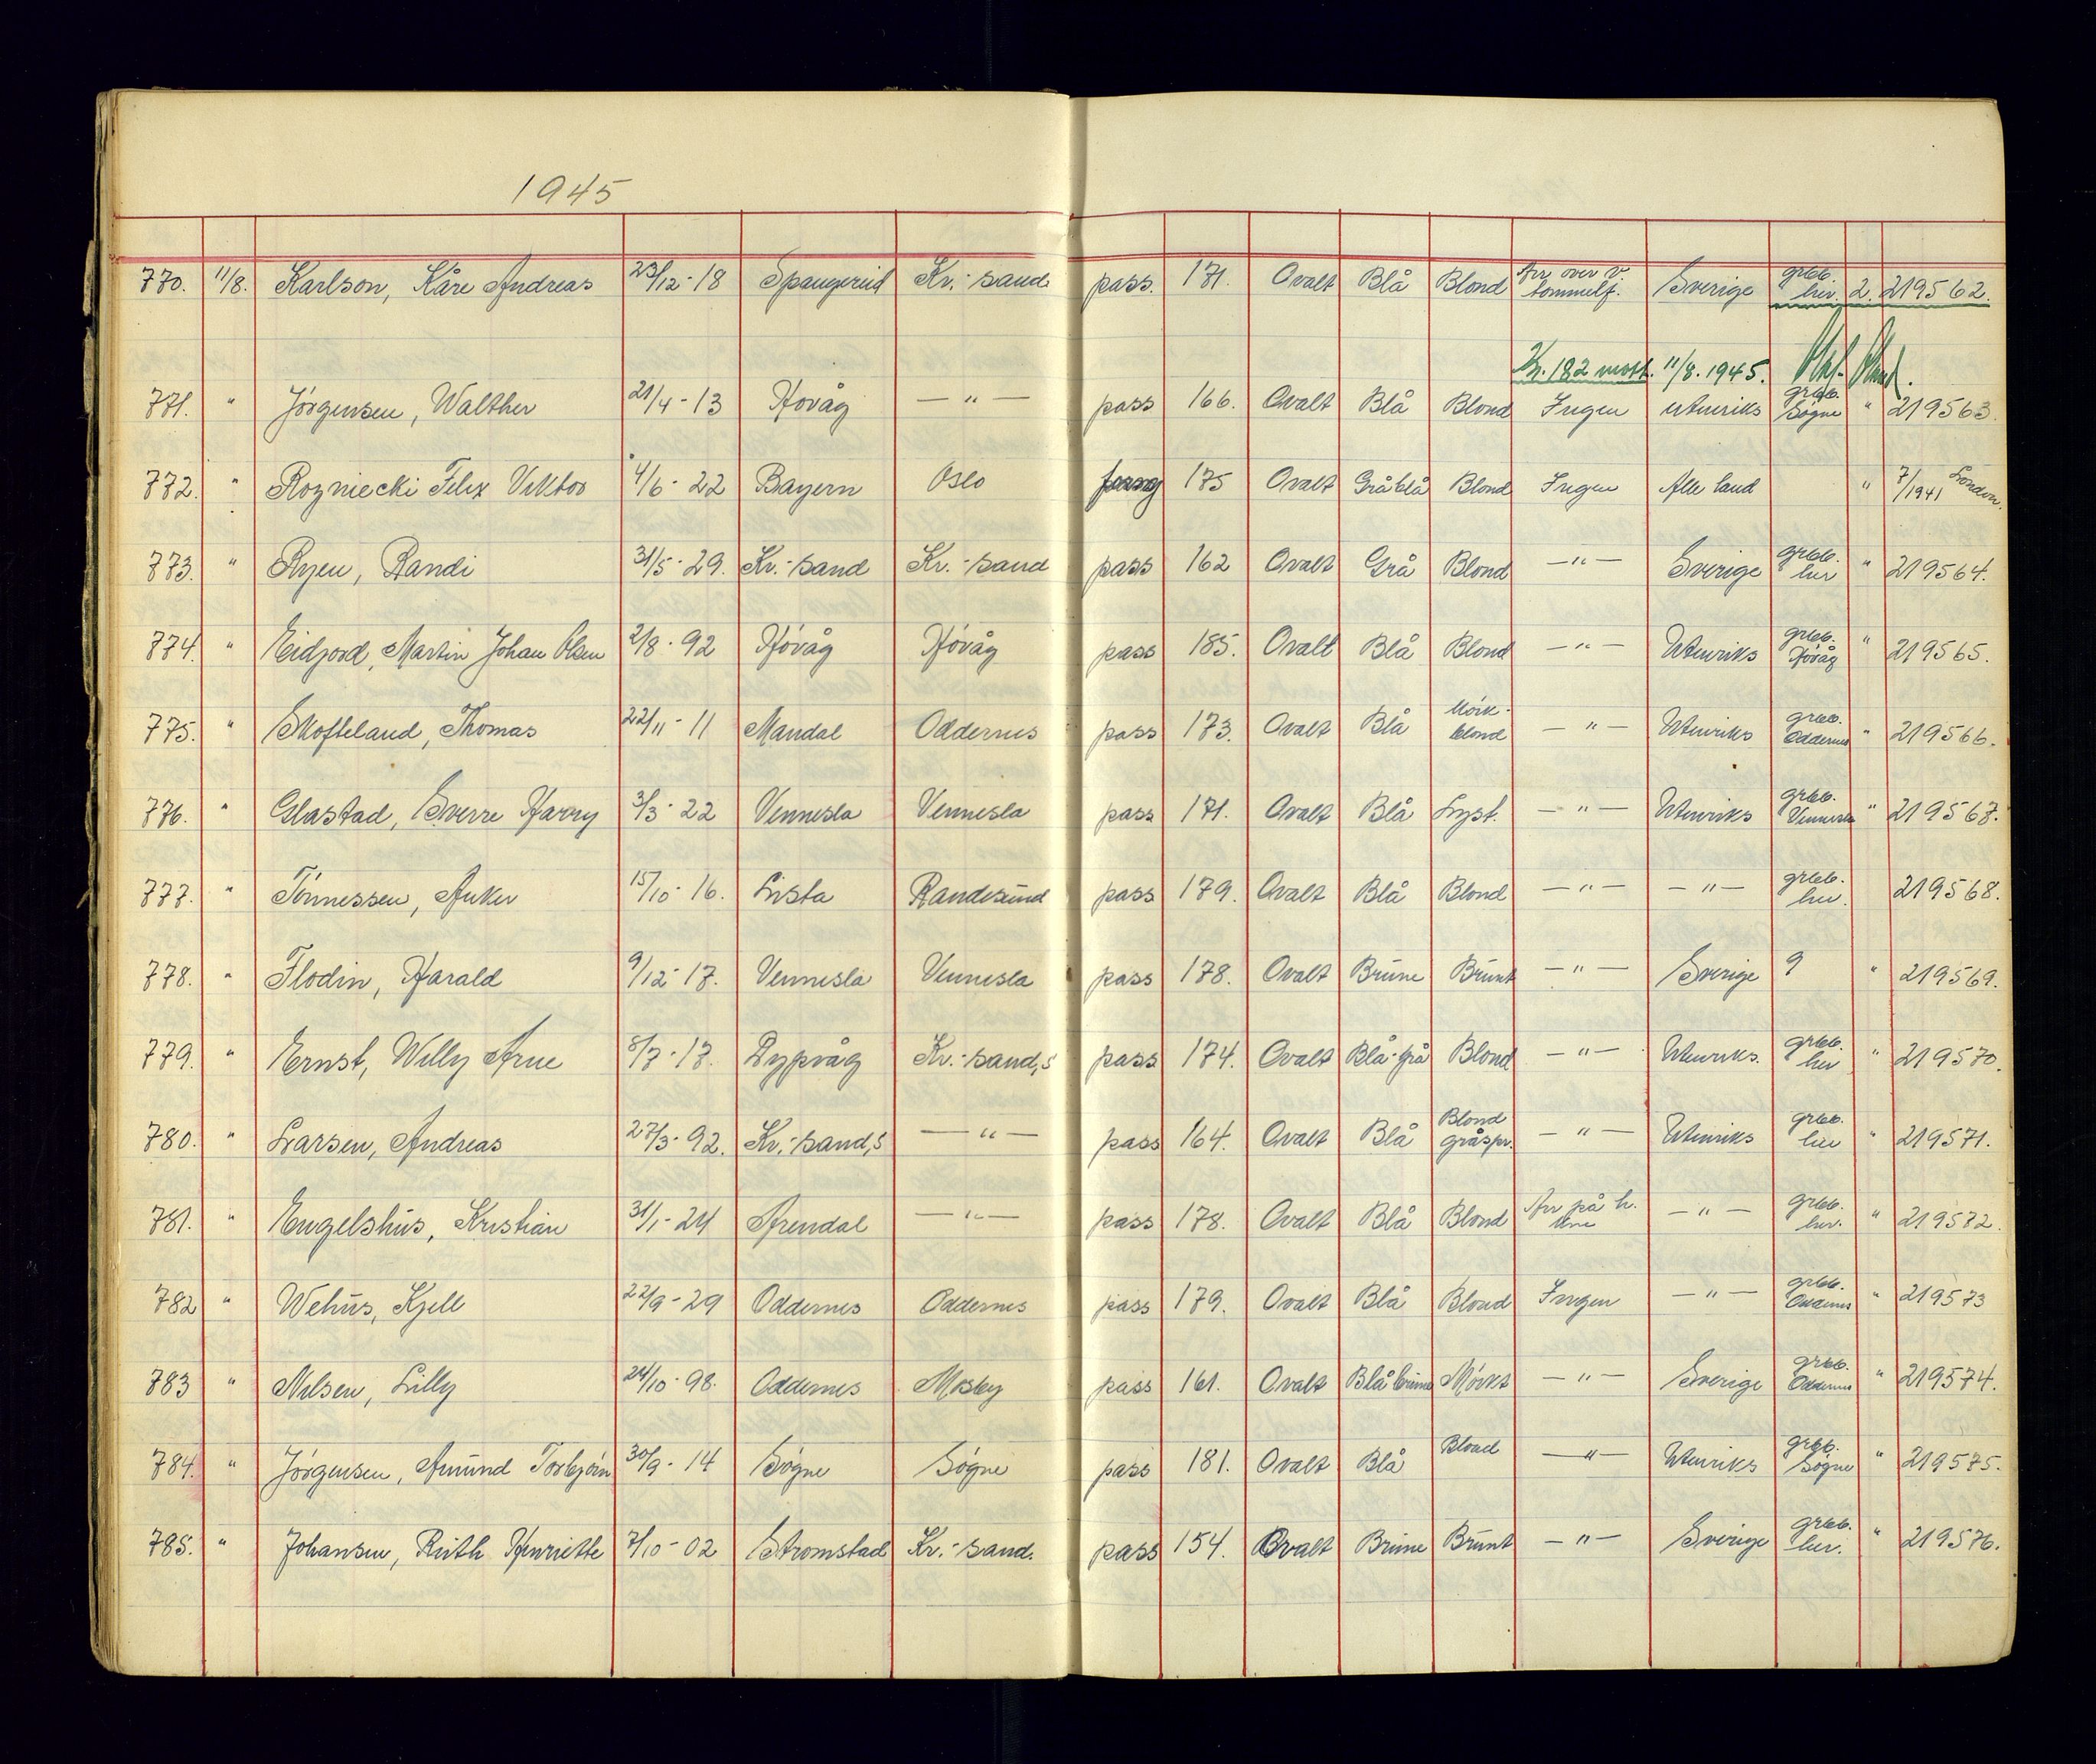 1945
770. 11/8. Karlson, Kåre Andreas 23/12-18 Spangereid Kr.-sand. pass. 171. Ovalt Blå Blond Arr over v. tommelf. Sverige grbb. her. 2. 219562.
Kr. 182 mott. 11/8. 1945.
771. " Jörgensen, Walther 21/4-13 Hövåg —"— pass 166. Ovalt Blå Blond Ingen Utenriks grbb. Sögne " 219563.
772. " Rozniecki Felix Viktor 4/6-22 Bayern Oslo 175 Ovalt Gråblå Blond Ingen Alle land " 7/1941 London.
773. " Ryen, Randi 31/5-29. Kr.-sand Kr.-sand pass 162 Ovalt Grå Blond —"— Sverige grbb. her " 219564.
774. " Eidjord, Martin Johan Olsen 2/8-92 Hövåg Hövåg pass 185. Ovalt Blå Blond —"— Utenriks grbb. Hövåg " 219565.
775. " Skofteland, Thomas 22/11-11 Mandal Oddernes pass 173. Ovalt Blå Mörk-blond —"— Utenriks grbb. Oddernes " 219566.
776. " Glastad, Sverre Harry 3/3-22 Vennesla Vennesla pass 171. Ovalt Blå Lyst. —"— Utenriks grbb. Vennesla " 219567.
777. " Tönnessen, Anker 15/10-16. Lista Randesund pass 179. Ovalt Blå Blond —"— —"— grbb. her. 219568.
778. " Flodin, Harald 9/12-17. Vennesla Vennesla pass 178. Ovalt Brune Brunt —"— Sverige 9 " 219569.
779. " Ernst, Willy Arne 8/7-17. Dypvåg Kr.-sand,S pass 174. Ovalt Blå-grå Blond —"— Utenriks. grbb. her " 219570.
780. " Larsen, Andreas 27/3-92. Kr.-sand,S —"— pass 164. Ovalt Blå Blond gråspr. —"— Utenriks grbb. her " 219571.
781. " Engelshus, Kristian 31/1-24 Arendal —"— pass 178. Ovalt Blå Blond Arr på h. kne —"— grbb. her. " 219572.
782 " Wehus, Kjell 22/9-29 Oddernes Oddernes pass 179. Ovalt Blå Blond Ingen —"— grbb. Oddernes " 219573
783 " Nilsen, Lilly 24/10-98. Oddernes Mosby pass 161. Ovalt Blåbrune Mörkt —"— Sverige grbb. Oddernes " 219574.
784. " Jörgensen, Amund Torbjörn 30/9-14 Sögne Sögne pass 181. Ovalt Blå Blond —"— Utenriks grbb. Sögne " 219575.
785. " Johansen, Ruth Henriette 7/10-02 Strømstad Kr.-sand. pass 154. Ovalt Brune Brunt —"— Sverige grbb. her. " 219576.